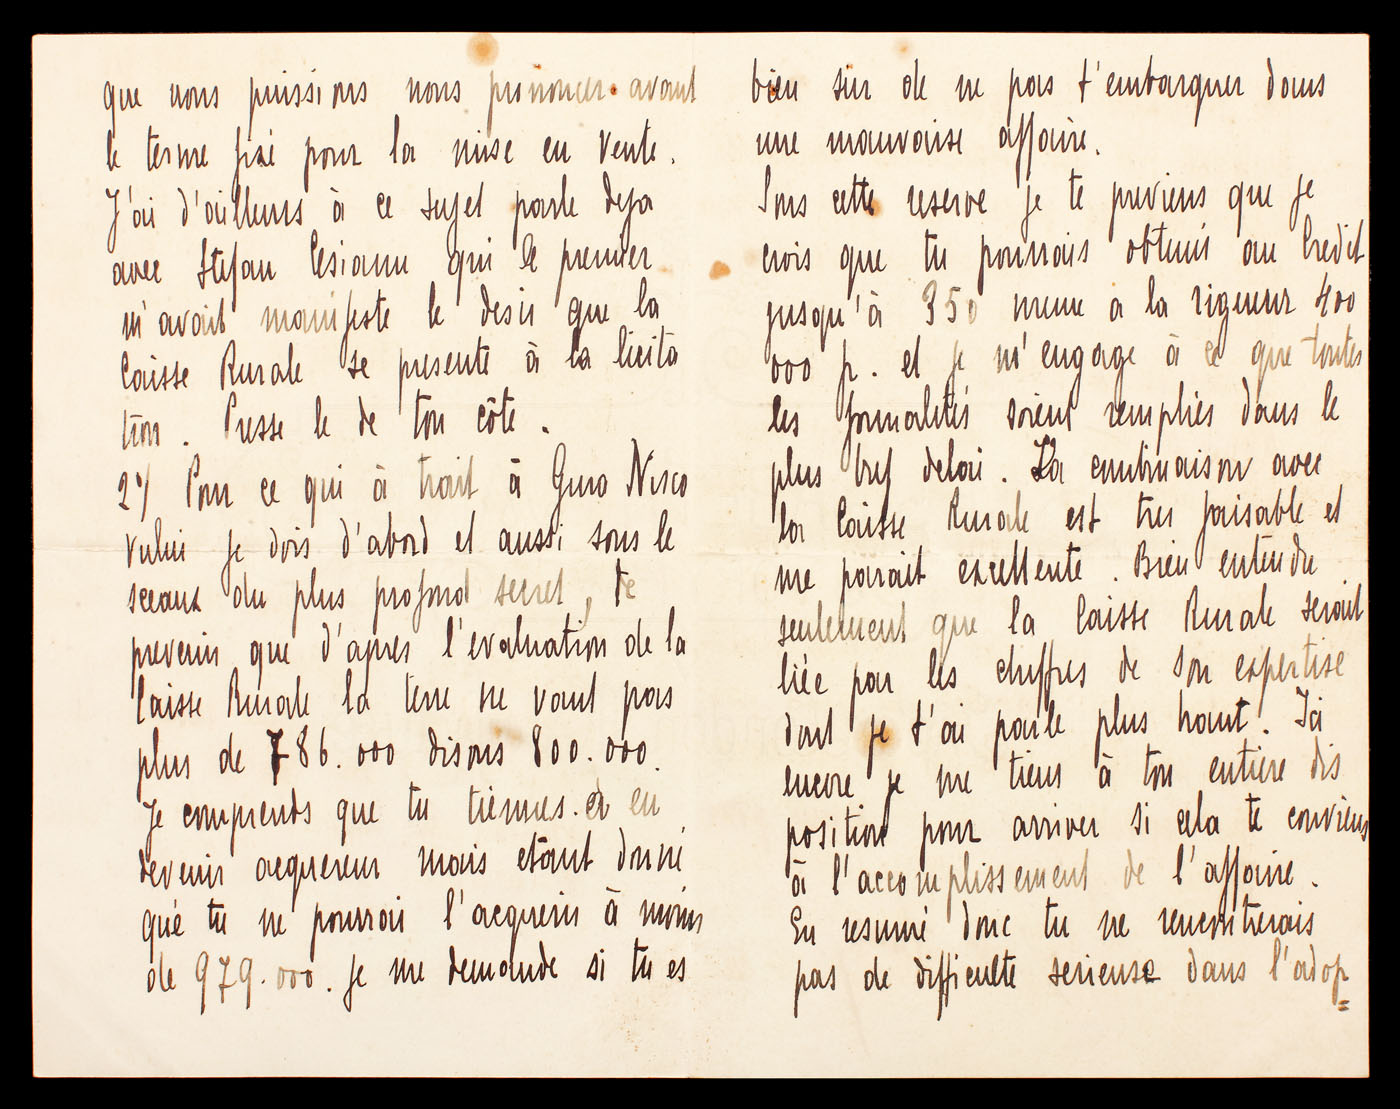 que nous puissions nous prononcer avant
le terme fixé pour la mise en vente.
J'ai d'ailleurs à ce sujet parlé deja
avec Stefan Cesianu qui le premier
m'avait manifeste le desir que la
Caisse Rurale se presente à la licita
tion. Presse le de ton côte.
2°/ Pour ce qui à trait à Gura Nisco
vului je dois d'abord et aussi sous le
sceaux du plus profond secret, te
prevenir que d'apres l'evaluation de la
Caisse Rurale la terre ne vaut pas
plus de 786.000 disons 800.000.
Je comprends que tu tiennes à en
devenir acquereur mais etant donné
qué tu ne pourrai l'acquerir à moins
de 979.000. je me demande si tu es
bien sur de ne pas t'embarquer dans
une mauvaise affaire.
Sous cette reserve je te previens que je
crois que tu pourrais obtenir au Credit
jusqu'à 350 meme a la rigueur 400
000 fr. et je m'engage à ce que toutes
les formalités soient remplies dans le
plus bref delai. La combinaison avec
la Caisse Rurale est tres faisable et
me parait excellente. Bien entendu
seulement que la Caisse Rurale serait
liée par les chiffres de son expertise
dont je t'ai parle plus haut. Ici
encore je me tiens à ton entiere dis
position pour arriver si cela te conviens
à l'accomplissement de l'affaire.
En resumé donc tu ne rencontrerais
pas de difficulte serieuse dans l'adop=